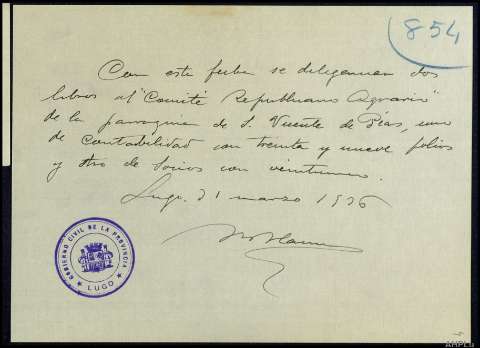 854
Con esta fecha se diligencian dos
libros al "Comité Republicano Agrario"
de la parroquia de S. Vicente de Pías, uno
de contabilidad con treinta y nueve folios
y otro de socios con veintiuno.
Lugo, 31 marzo 1936
GOBIERNO CIVIL DE LA PROVINCIA
LUGO
AHPLu